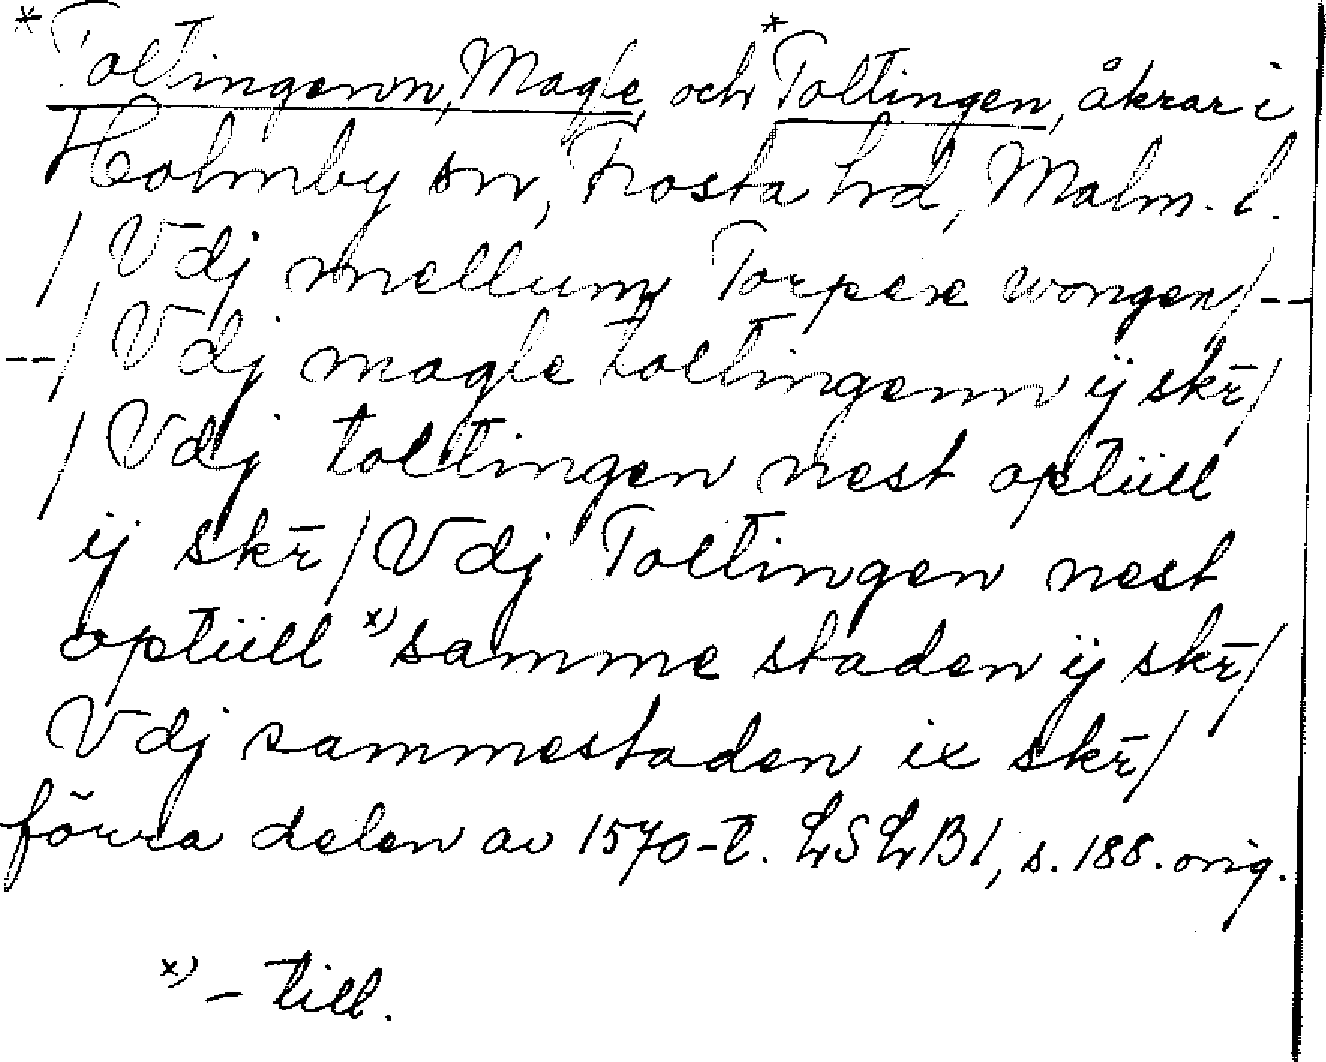 *Toltingenn, Magle, och *Toltingen, åkrar i
Holmby sn, Frosta hd, Malm. l.
/Vdj mellum Torpere wongen/--
--/Vdj magle toltingenn ij skr̄/
/Vdj toltingen nest optüll
ij skr̄/Vdj Toltingen nest
optüll x) samme staden ij skr̄/
Vdj sammestaden ix skr̄/
förra delen av 1570-t. LSLB1, s. 188. orig.
x) - till.